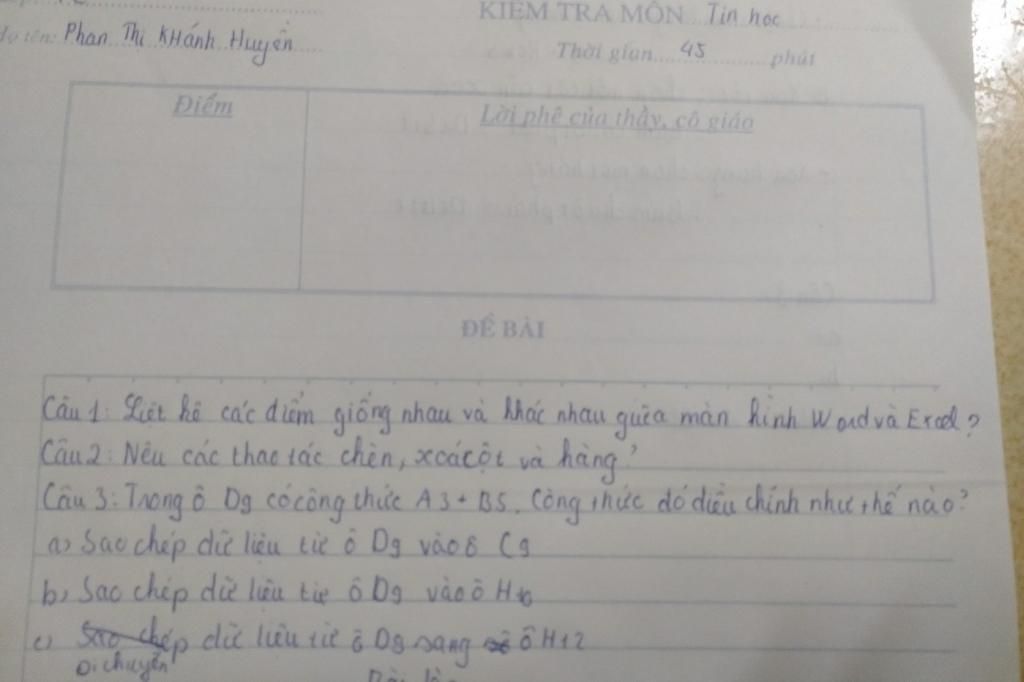 KIỂM TRA MÔN Tin học
Họ tên: Phan Thị KHánh Huyền
Thời gian 45 phút
Điểm
Lời phê của thầy, cô giáo
ĐỀ BÀI
Câu 1: Liệt kê các điểm giống nhau và khác nhau giữa màn hình Word và Excel?
Câu 2: Nêu các thao tác chèn, xoá cột và hàng?
Câu 3: Trong ô D9 có công thức A3+B5. Công thức đó điều chỉnh như thế nào?
a) Sao chép dữ liệu từ ô D9 vào ô C9
b) Sao chép dữ liệu từ ô D9 vào ô H10
c) Sao chép dữ liệu từ ô D9 sang ô H12
Di chuyển